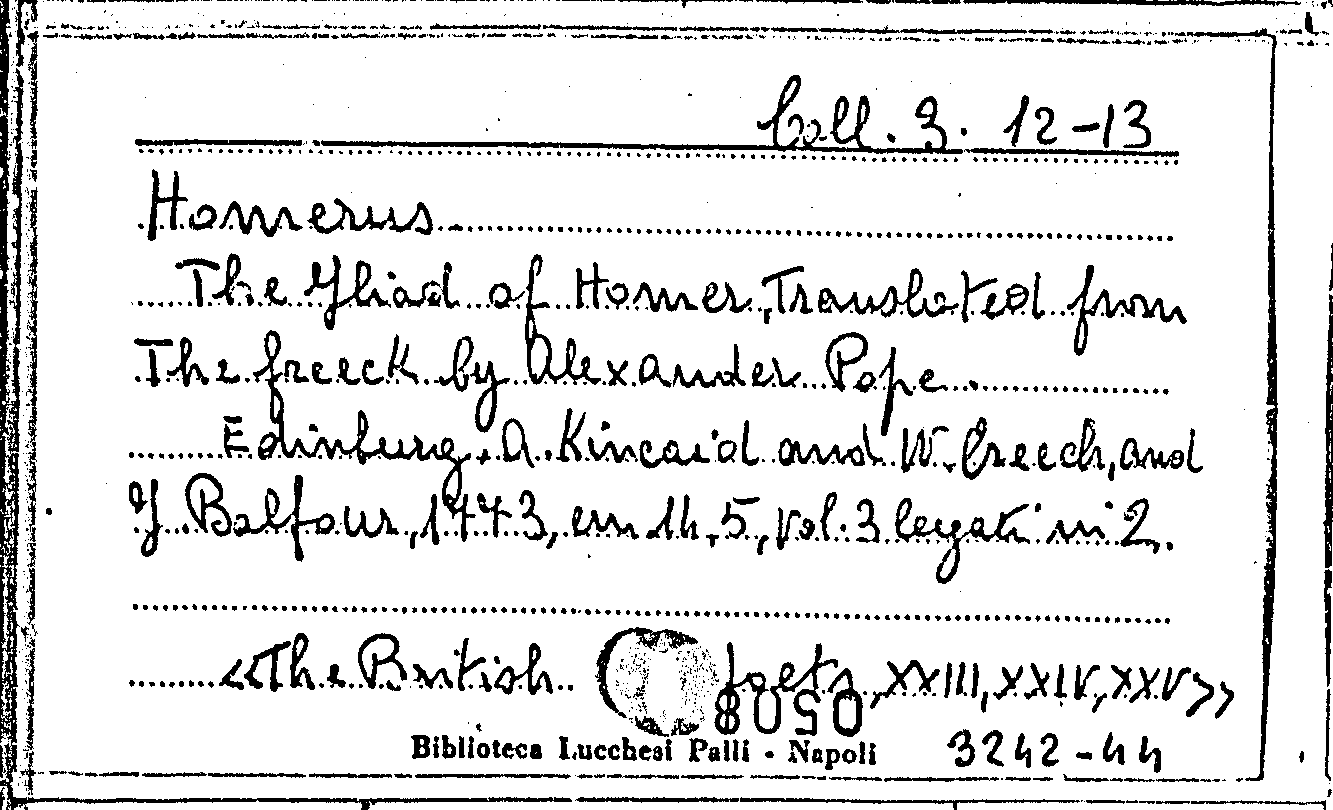 Coll. 3. 12-13
Homerus
The Yliad of Homer, Translated from
The freeck by Alexander Pope.
Edinburg, A. Kincaid and W. Creech, and
J. Balfour, 1773, cm 14,5, vol. 3 legati in 2.
«The British Poets, XXIII, XXIV, XXV»
8050
Biblioteca Lucchesi Palli - Napoli 3242-44